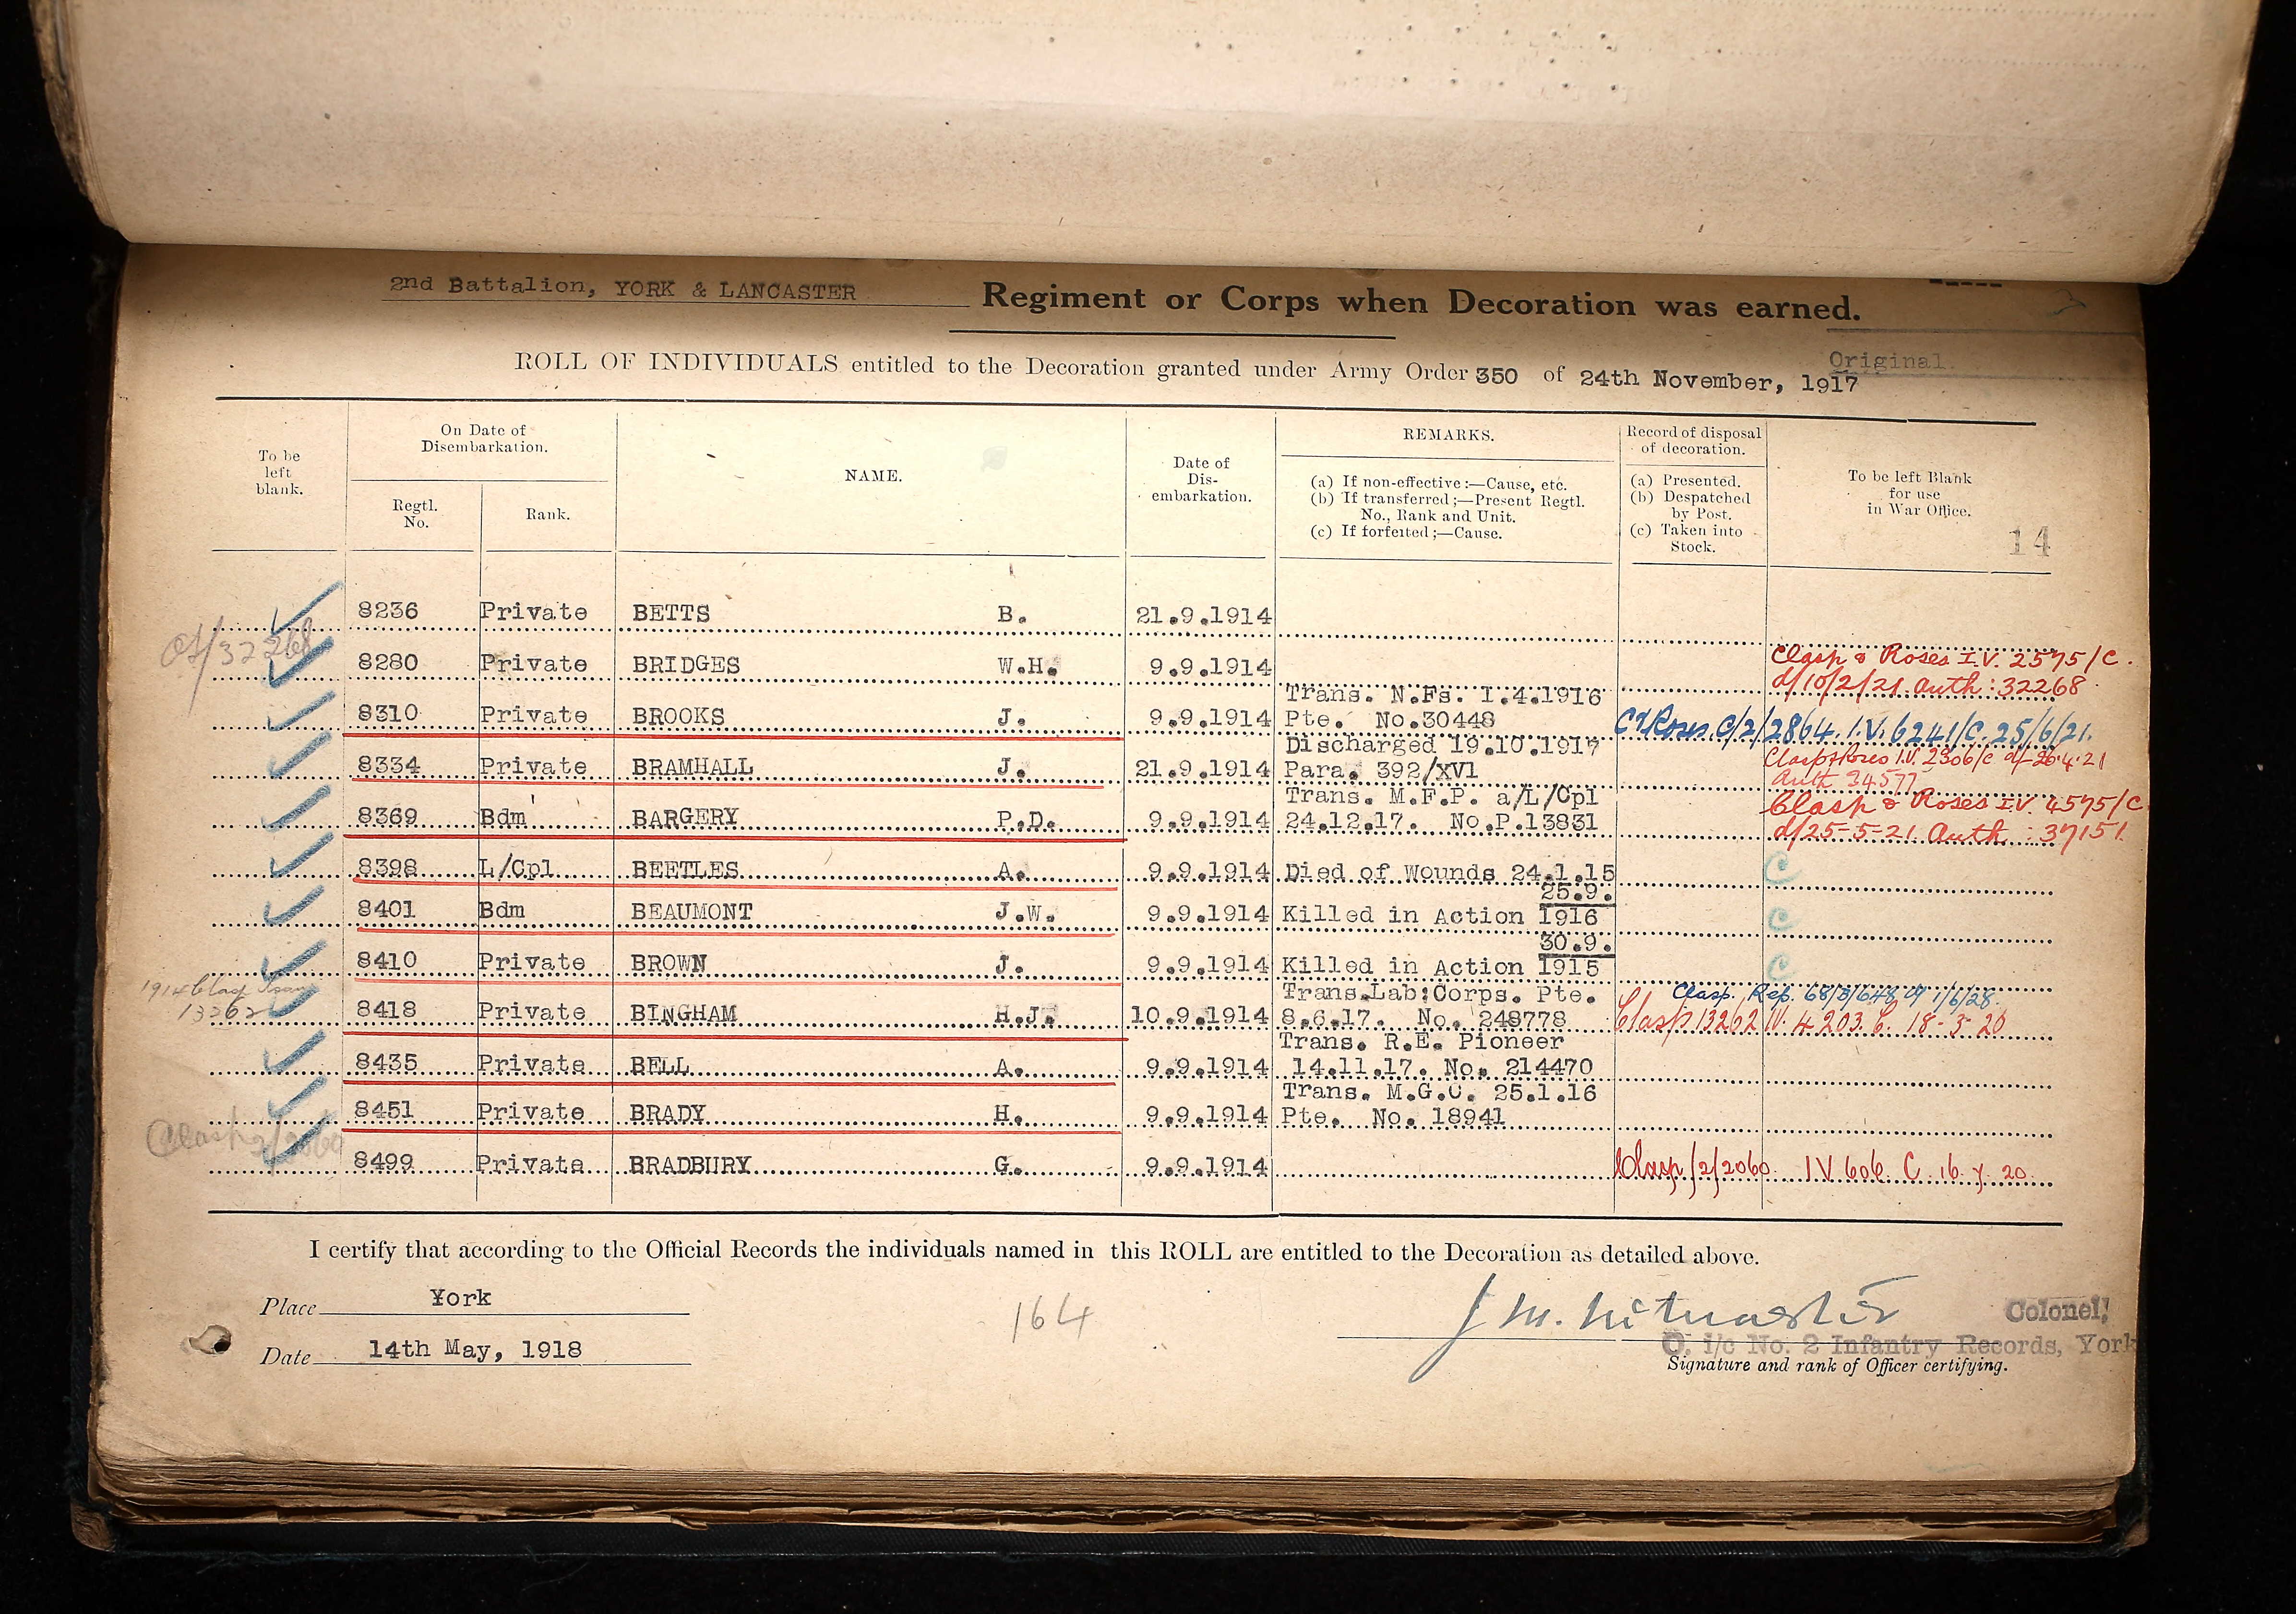 2nd Battalion, YORK & LANCASTER Regiment or Corps when Decoration was earned.
Original
ROLL OF INDIVIDUALS entitled to the Decoration granted under Army Order 350 of 24th November, 1917
To be left blank.
On Date of Disembarkation.
Regtl. No.
Rank.
NAME.
Date of Dis-embarkation.
REMARKS.
(a) If non-effective:—Cause, etc.
(b) If transferred;—Present Regtl. No., Rank and Unit.
(c) If forfeited;—Cause.
Record of disposal of decoration.
(a) Presented.
(b) Despatched by Post.
(c) Taken into Stock.
To be left Blank for use in War Office.
14
8236 Private BETTS B. 21.9.1914
32268
8280 Private BRIDGES W.H. 9.9.1914 Clasp & Roses I.V. 2575/C.
d/10/2/21 Auth: 32268
Trans. N.Fs. 1.4.1916
8310 Private BROOKS J. 9.9.1914 Pte. No.30448 C & Roses C/2/2864. I.V. 6241/C. 25/6/21.
Discharged 19.10.1917
8334 Private BRAMHALL J. 21.9.1914 Para. 392/XVI Clasp & Roses I.V. 2306/C d/-26.4.21
Auth 34577
Trans. M.F.P. a/L/Cpl
8369 Bdm BARGERY P.D. 9.9.1914 24.12.17. No.P.13831 Clasp & Roses I.V. 4575/C
d/25-5-21. Auth: 37151.
8398 L/Cpl BEETLES A. 9.9.1914 Died of Wounds 24.1.15 C
25.9.
8401 Bdm BEAUMONT J.W. 9.9.1914 Killed in Action 1916 C
30.9.
8410 Private BROWN J. 9.9.1914 Killed in Action 1915 C
1914 Clasp
13262
Trans.Lab:Corps. Pte. Clasp. Rep. 68/8/648 d/ 1/6/28.
8418 Private BINGHAM H.J. 10.9.1914 8.6.17. No. 248778 Clasp 13262 IV. 4203. C. 18-3-20
Trans. R.E. Pioneer
8435 Private BELL A. 9.9.1914 14.11.17. No. 214470
Trans. M.G.C. 25.1.16
8451 Private BRADY H. 9.9.1914 Pte. No. 18941
Clasp 2/2060
8499 Private BRADBURY G. 9.9.1914 Clasp/2/2060. IV 606. C. 16.7.20.
I certify that according to the Official Records the individuals named in this ROLL are entitled to the Decoration as detailed above.
Place York
164
Colonel,
O. i/c No. 2 Infantry Records, York
Date 14th May, 1918
Signature and rank of Officer certifying.